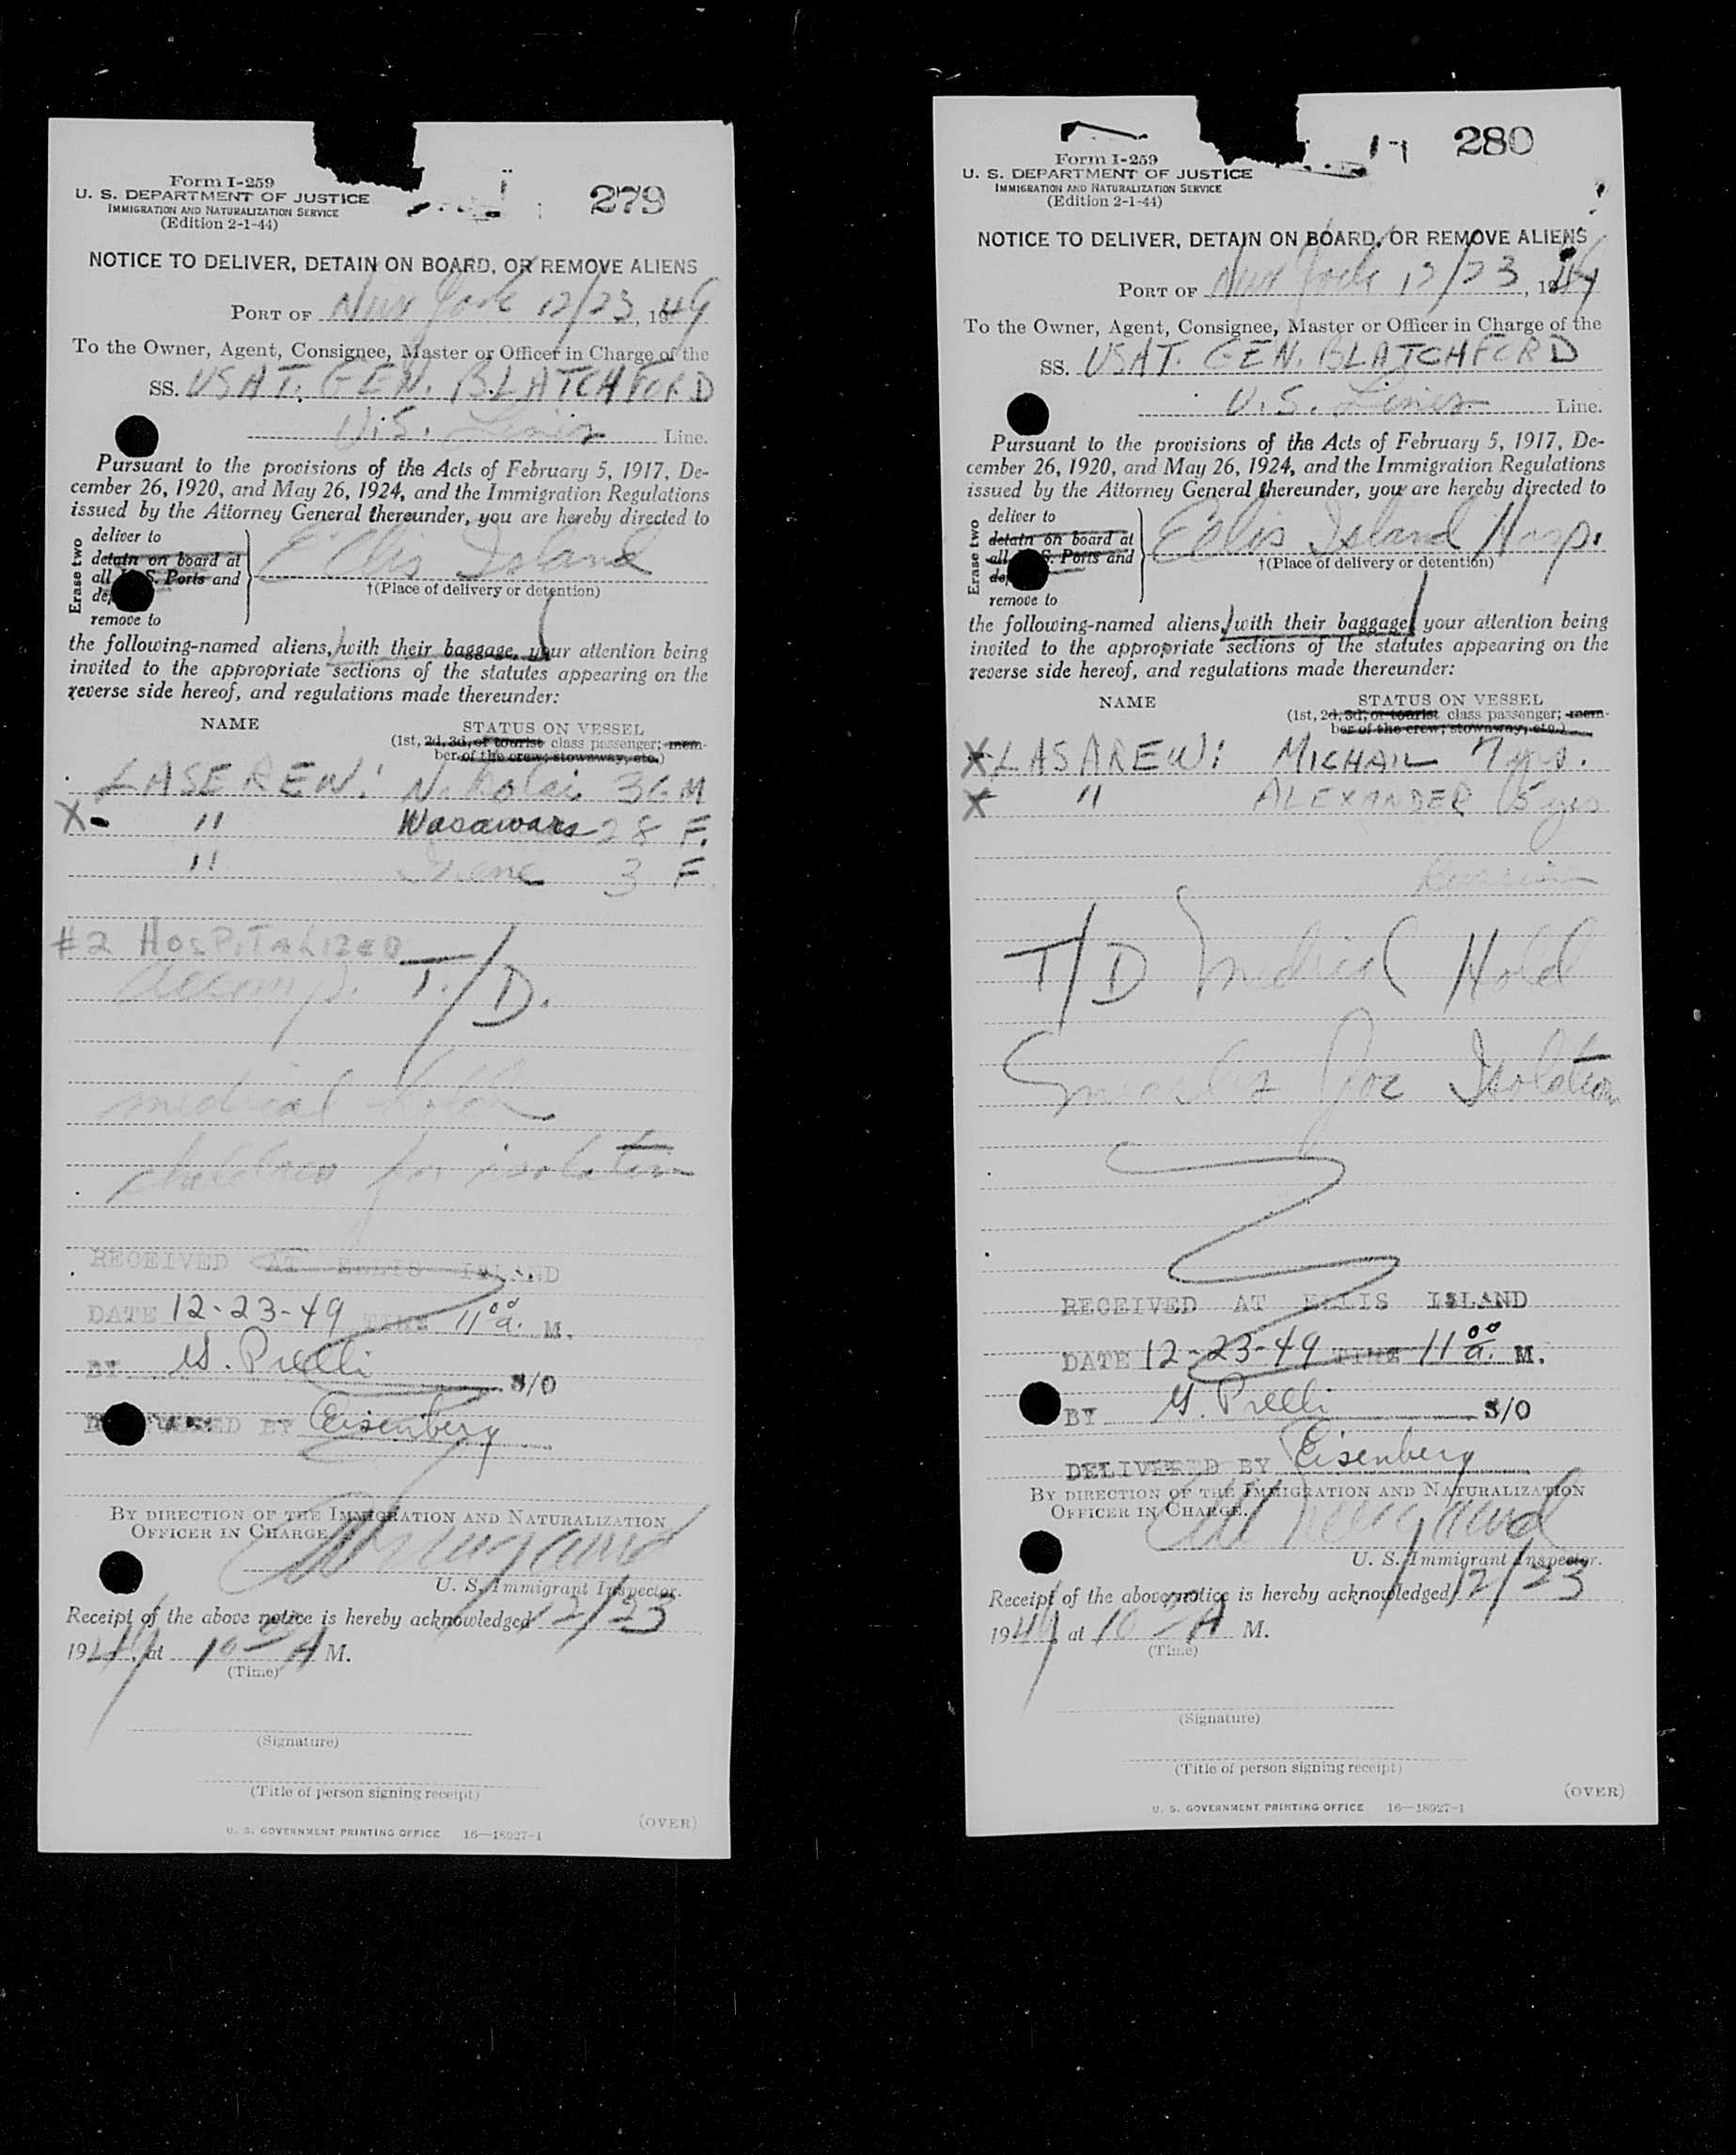 Form I-259
U. S. DEPARTMENT OF JUSTICE
IMMIGRATION AND NATURALIZATION SERVICE
(Edition 2-1-44)
279
NOTICE TO DELIVER, DETAIN ON BOARD, OR REMOVE ALIENS
PORT OF New York 12/23, 1949
To the Owner, Agent, Consignee, Master or Officer in Charge of the
SS. USAT. GEN. BLATCHFORD
U.S. Lines Line.
Pursuant to the provisions of the Acts of February 5, 1917, De-
cember 26, 1920, and May 26, 1924, and the Immigration Regulations
issued by the Attorney General thereunder, you are hereby directed to
Erase two
deliver to
detain on board at
all U. S. Ports and
remove to
Ellis Island
†(Place of delivery or detention)
the following-named aliens, with their baggage, your attention being
invited to the appropriate sections of the statutes appearing on the
reverse side hereof, and regulations made thereunder:
NAME STATUS ON VESSEL
(1st, 2d, 3d, or tourist class passenger; mem-
ber of the crew; stowaway, etc.)
LASEREW: Nikolai M
X- " Wasawara 28 F.
" Irene 3 F
#2 HOSPITALIZED
accomp. T./D.
medical hold
children for isolation
RECEIVED AT ELLIS ISLAND
DATE 12-23-49 TIME 11 00 a. M.
BY S/O
DELIVERED BY Eisenberg
BY DIRECTION OF THE IMMIGRATION AND NATURALIZATION
OFFICER IN CHARGE.
U. S. Immigrant Inspector.
Receipt of the above notice is hereby acknowledged 12/23
1949, at 10 A M.
(Time)
(Signature)
(Title of person signing receipt)
(OVER)
U. S. GOVERNMENT PRINTING OFFICE 16—18027-1
280
Form I-259
U. S. DEPARTMENT OF JUSTICE
IMMIGRATION AND NATURALIZATION SERVICE
(Edition 2-1-44)
NOTICE TO DELIVER, DETAIN ON BOARD, OR REMOVE ALIENS
PORT OF New York 12/23, 1949
To the Owner, Agent, Consignee, Master or Officer in Charge of the
SS. USAT. GEN. BLATCHFORD
U.S. Lines Line.
Pursuant to the provisions of the Acts of February 5, 1917, De-
cember 26, 1920, and May 26, 1924, and the Immigration Regulations
issued by the Attorney General thereunder, you are hereby directed to
Erase two
deliver to
detain on board at
all U. S. Ports and
remove to
Ellis Island Hosp.
†(Place of delivery or detention)
the following-named aliens, with their baggage, your attention being
invited to the appropriate sections of the statutes appearing on the
reverse side hereof, and regulations made thereunder:
NAME STATUS ON VESSEL
(1st, 2d, 3d, or tourist class passenger; mem-
ber of the crew; stowaway, etc.)
X LASAREW: MICHAIL 7 yrs.
X " ALEXANDER 5 yrs
Russian
T/D Medical Hold
Measles for Isolation
RECEIVED AT ELLIS ISLAND
DATE 12-23-49 TIME 11 00 a. M.
BY S/O
DELIVERED BY Eisenberg
BY DIRECTION OF THE IMMIGRATION AND NATURALIZATION
OFFICER IN CHARGE.
U. S. Immigrant Inspector.
Receipt of the above notice is hereby acknowledged 12/23
1949, at 10 A M.
(Time)
(Signature)
(Title of person signing receipt)
(OVER)
U. S. GOVERNMENT PRINTING OFFICE 16—18027-1